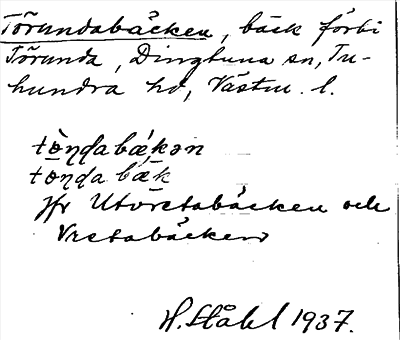 Törundabäcken, bäck förbi
Törunda, Dingtuna sn, Tu-
hundra hd, Västm. l.
tò̱ṇdabǽ̱kən
tò̱ṇda bæ̱k
Jfr Utvretabäcken och
Vretabäcken
H. Ståhl 1937.